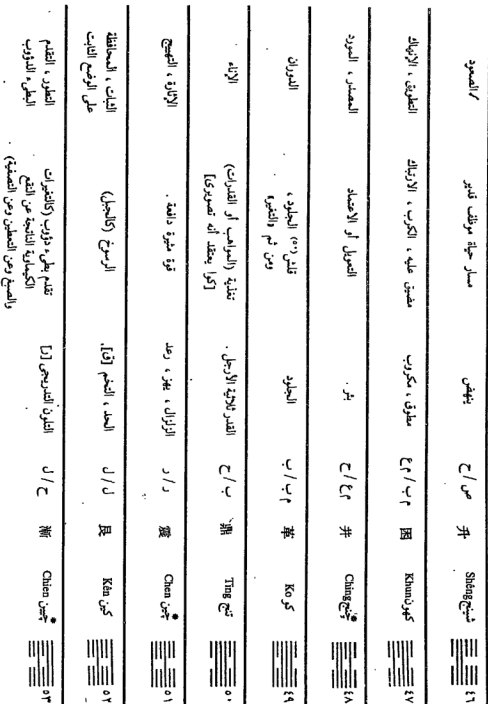 ٤٦ شينج Shêng 升 ص / ح ينهض مسار حياة موظف قدير الصعود
٤٧ كهون Khun 困 م ب / م ع مطوق ، مكروب مضيق عليه ، الكرب ، الارتباك التطويق ، الإنهاك
٤٨ چنج Ching* 井 م ع / ح بئر . التعويل أو الاعتماد المصدر ، المورد
٤٩ كو Ko 革 م ب / ب الجلود قلش(٥*) الجلود ،
ومن ثم «التغير»
الدوران
٥٠ تنج Ting 鼎 ب / ح القدر ثلاثية الأرجل . تغذية (المواهب أو القدرات)
[كوا يعتقد أنه تصويرى]
الإناء
٥١ چين Chen* 震 ر / ر الزلزال ، يهز ، رعد قوة مثيرة دافعة . الإثارة ، التهييج
٥٢ كين Kên 艮 ل / ل الحد ، التخم [ق]. الرسوخ (كالجبل) الثبات ، المحافظة
على الوضع الثابت
٥٣ چيين Chien* 漸 ح / ل التلون التدريجى [ز] تقدم بطىء دؤوب (كالتغيرات
الكيماوية الناتجة عن النقع
والصبغ وعن التعطين وعن التصفية)
التطور ، التقدم
البطىء الدؤوب